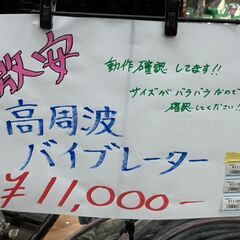 激安
動作確認してます!!
サイズがバラバラなので
確認してください!
高周波
バイブレーター
¥11,000-